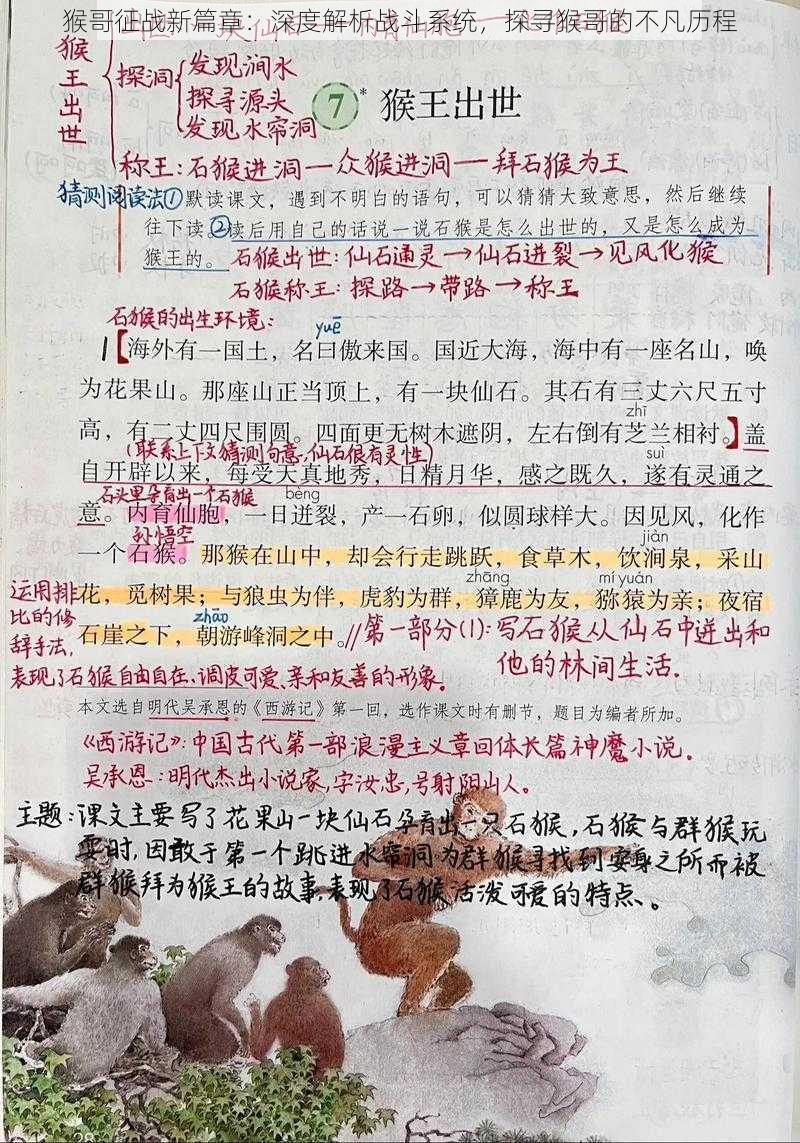 猴哥征战新篇章：深度解析战斗系统，探寻猴哥的不凡历程
猴王出世
探洞
发现涧水
探寻源头
发现水帘洞
7* 猴王出世
称王：石猴进洞—众猴进洞—拜石猴为王
猜测阅读法①默读课文，遇到不明白的语句，可以猜猜大致意思，然后继续
往下读。②读后用自己的话说一说石猴是怎么出世的，又是怎么成为
猴王的。 石猴出世：仙石通灵→仙石迸裂→见风化猴
石猴称王：探路→带路→称王
石猴的出生环境：
yuē
1【海外有一国土，名曰傲来国。国近大海，海中有一座名山，唤
为花果山。那座山正当顶上，有一块仙石。其石有三丈六尺五寸
zhī
高，有二丈四尺围圆。四面更无树木遮阴，左右倒有芝兰相衬。】盖
(联系上下文猜测句意，仙石很有灵性)
suì
自开辟以来，每受天真地秀，日精月华，感之既久，遂有灵通之
石头里孕育出一个石猴
bèng
意。内育仙胞，一日迸裂，产一石卵，似圆球样大。因见风，化作
孙悟空
jiàn
一个石猴。那猴在山中，却会行走跳跃，食草木，饮涧泉，采山
zhāng mí yuán
花，觅树果；与狼虫为伴，虎豹为群，獐鹿为友，猕猿为亲；夜宿
zhāo
石崖之下，朝游峰洞之中。//第一部分(1)：写石猴从仙石中迸出和
他的林间生活.
运用排
比的修
辞手法，
表现了石猴自由自在、调皮可爱、亲和友善的形象。
本文选自明代吴承恩的《西游记》第一回，选作课文时有删节，题目为编者所加。
《西游记》：中国古代第一部浪漫主义章回体长篇神魔小说。
吴承恩：明代杰出小说家，字汝忠，号射阳山人。
主题：课文主要写了花果山一块仙石孕育出一只石猴，石猴与群猴玩
耍时，因敢于第一个跳进水帘洞为群猴寻找到安身之所而被
群猴拜为猴王的故事，表现了石猴活泼可爱的特点。
28